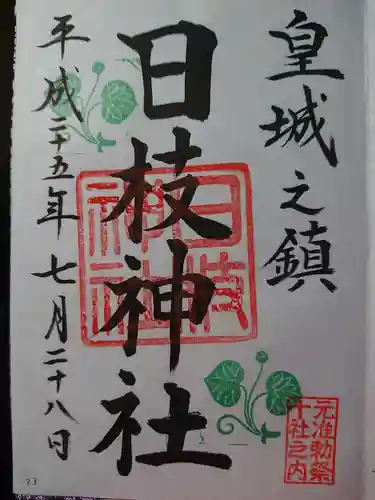 皇城之鎮
日枝神社
平成二十五年七月二十八日
日枝神社
元准勅祭
十社之内
23